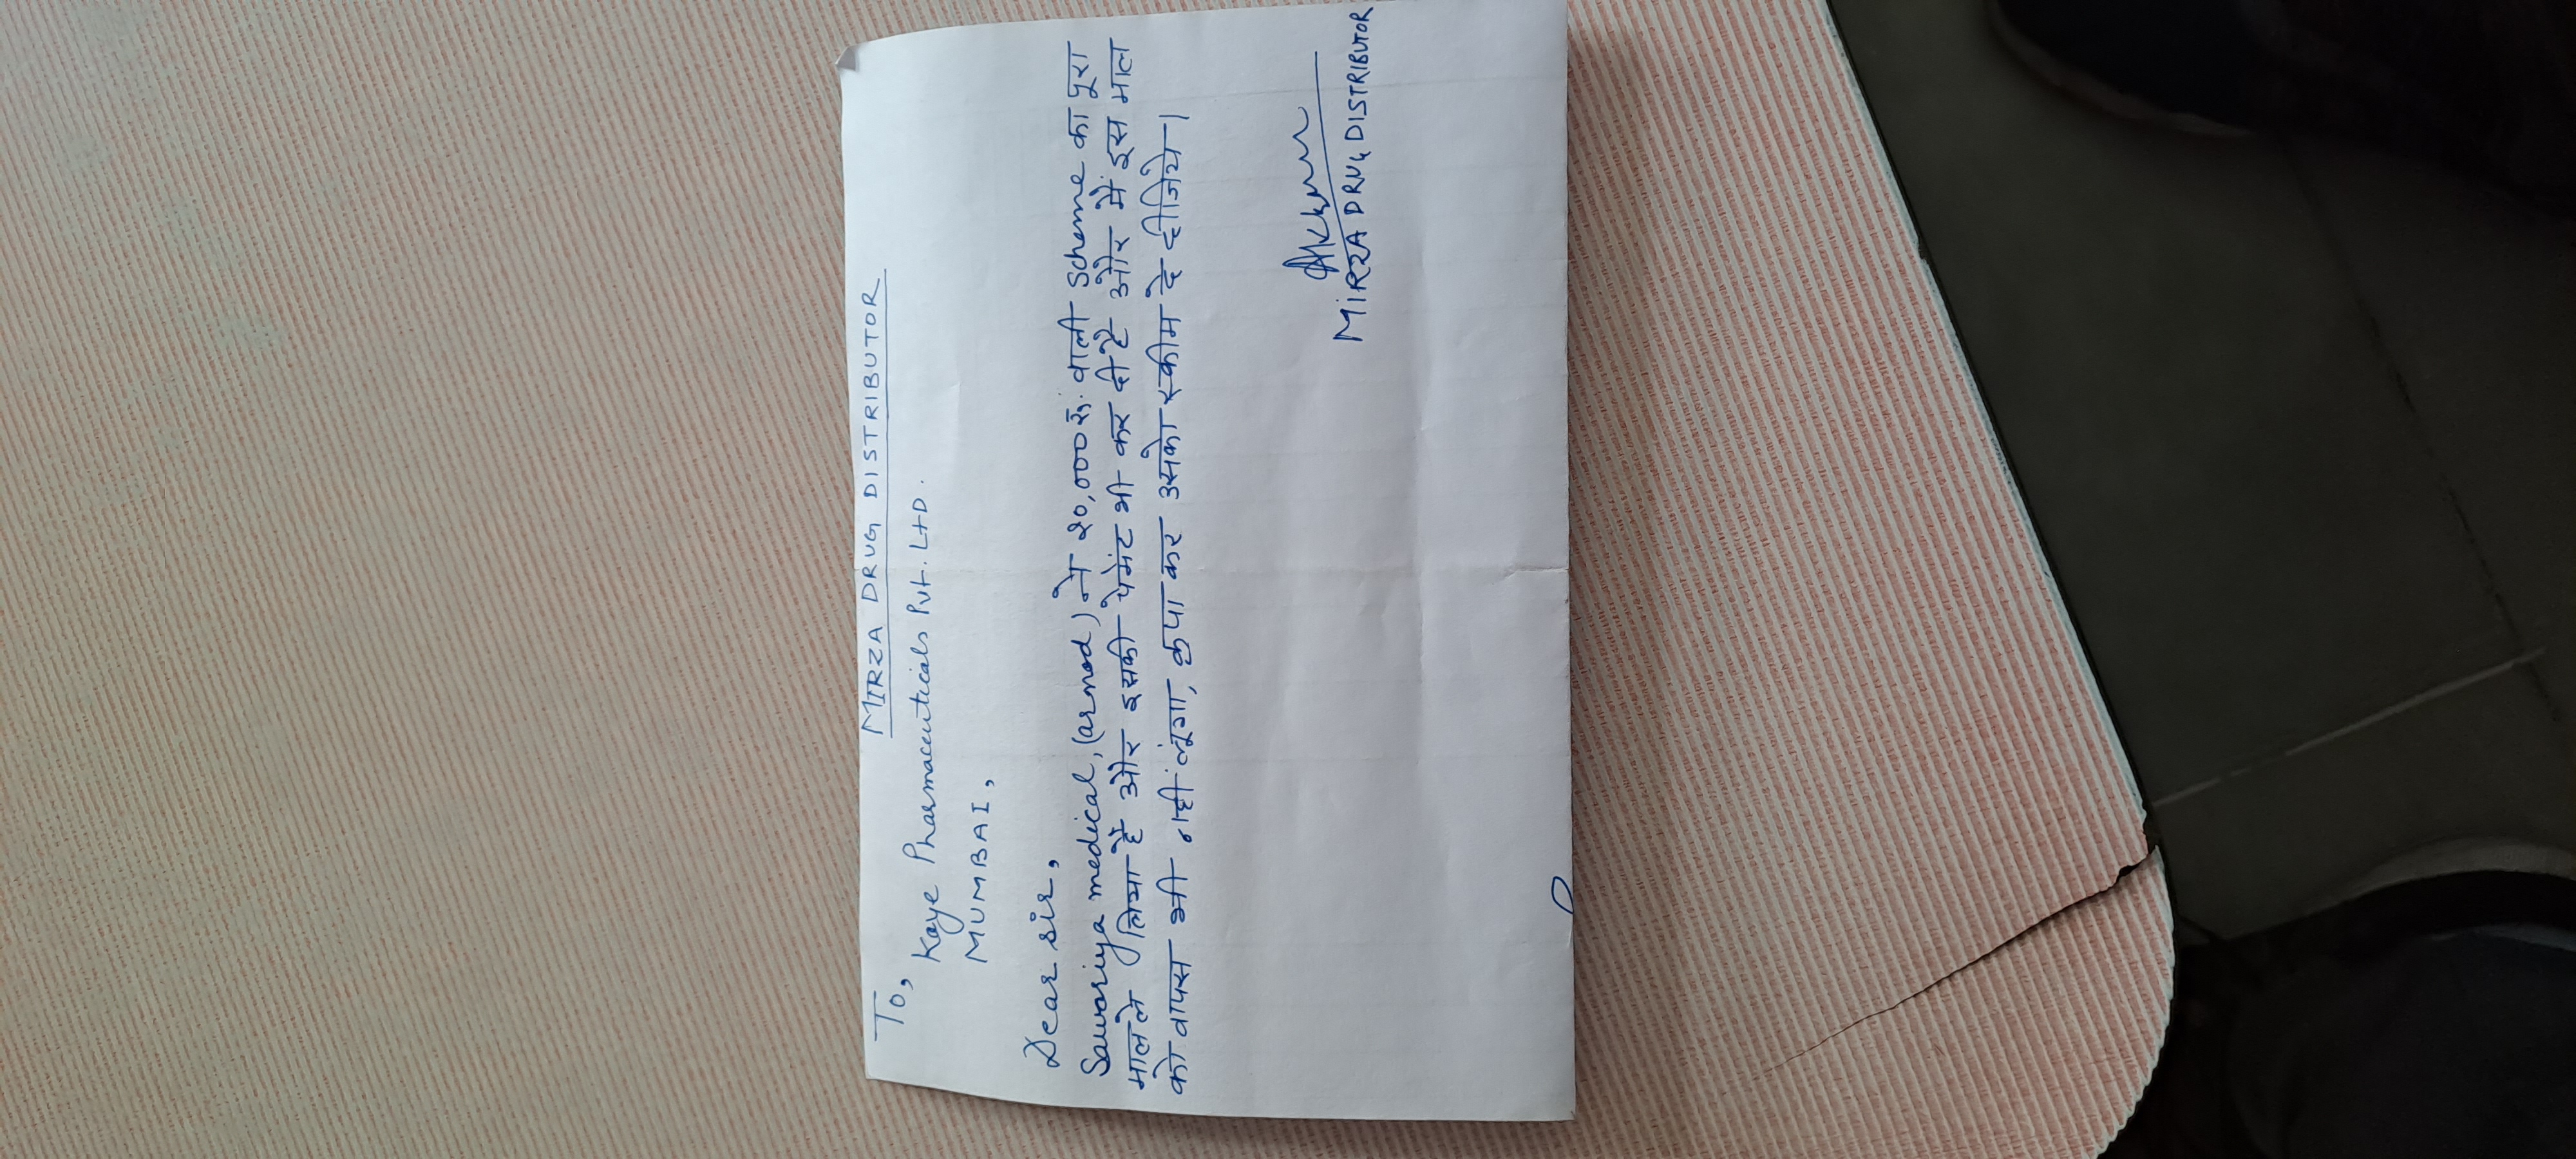 MIRZA DRUG DISTRIBUTOR
To,
Kaye Pharmaceuticals Pvt. LtD.
MUMBAI,
Dear sir,
Sawariya medical, (arnod) ने २०,००० रु. वाली Scheme का पूरा
माल ले लिया है और इसकी पेमेंट भी कर दी है और में इस माल
को वापस भी नहीं लूंगा, कृपा कर उसको स्कीम दे दीजिये।
MIRZA DRUG DISTRIBUTOR